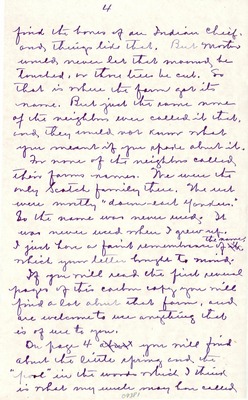 4
find the bones of an Indian Chief,
and, things like that. But Mother
would, never let that mound, be
touched, or those trees be cut. So
that is where the farm got its
name. But just the same none
of the neighbors ever called it that,
and, they would not know what
you meant if you spoke about it.
For none of the neighbors called
their farms names. We were the
only Scotch family there. The rest
were mostly "down-east Yankees."
So the name was never used. It
was never used when I grew up.
I just have a faint remembrance of the name
which your letter brought to mind.
If you will read the first several
pages of this carbon copy you will
find a lot about that farm, and
are welcome to use anything that
is of use to you.
On page 4 you will find
about the little spring and the
"pool" in the woods which I think
is what my uncle may have called